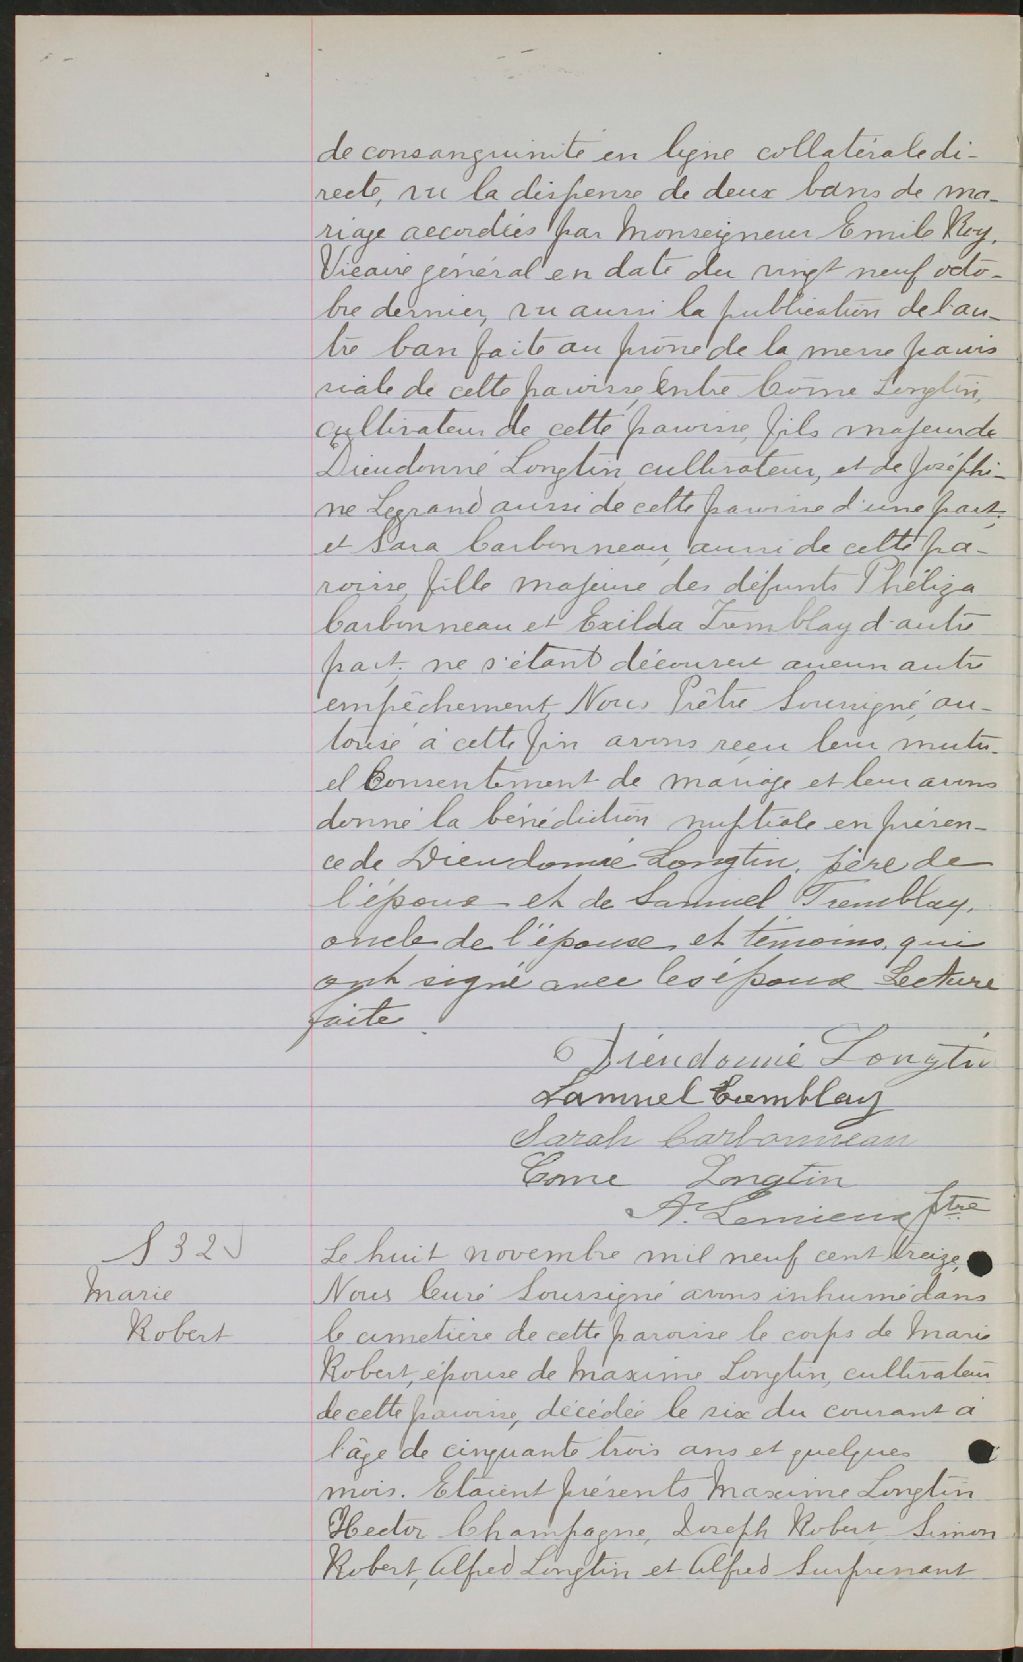 de consanguinité en ligne collatérale di-
recte, vu la dispense de deux bans de ma-
riage accordées par Monseigneur Emile Roy,
Vicaire général en date du vingt neuf octo-
bre dernier, vu aussi la publication de l'au-
tre ban faite au prône de la messe parois
siale de cette paroisse, Entre Côme Longtin,
cultivateur de cette paroisse, fils majeur de
Dieudonné Longtin, cultivateur, et de Joséphi-
ne Legrand aussi de cette paroisse d'une part;
et Sara Carbonneau, aussi de cette pa-
roisse, fille majeure des défunts Phéliza
Carbonneau et Exilda Tremblay d'autre
part; ne s'étant découvert aucun autre
empêchement, Nous Prêtre Soussigné, au-
torisé à cette fin avons reçu leur mutu-
el Consentement de mariage et leur avons
donné la bénédiction nuptiale en présen-
ce de Dieudonné Longtin, père de
l'époux et de Samuel Tremblay,
oncle de l'épouse, et témoins, qui
ont signé avec les époux Lecture
faite.
Dieudonné Longtin
Samuel Tremblay
Sarah Carbonneau
Come Longtin
A. Lemieux ptre
S 32
Marie
Robert
Le huit novembre mil neuf cent treize,
Nous Curé Soussigné avons inhumé dans
le cimetière de cette paroisse le corps de Marie
Robert, épouse de Maxime Longtin, cultivateur
de cette paroisse, décédée le six du courant à
l'âge de cinquante trois ans et quelques
mois. Etaient présents Maxime Longtin
Hector Champagne, Joseph Robert, Simon
Robert, Alfred Longtin et Alfred Surprenant